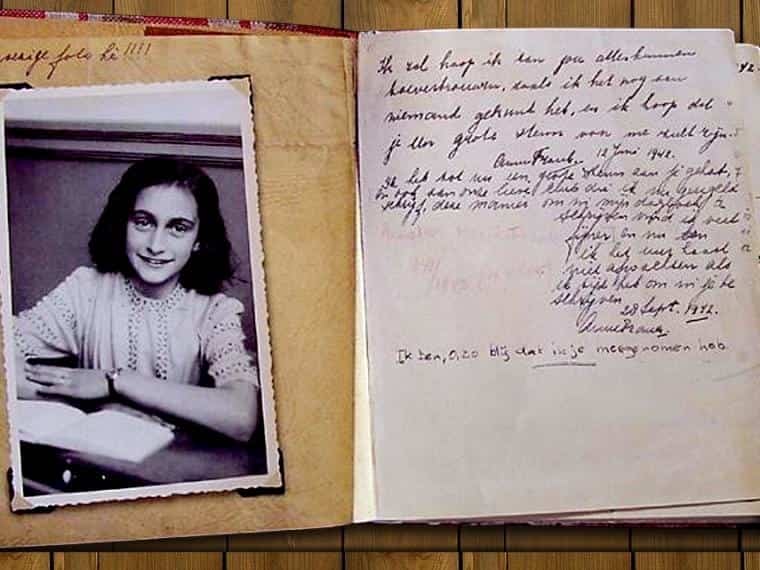 eenige foto hè!!!!
Ik zal hoop ik aan jou alles kunnen
toevertrouwen, zoals ik het nog aan
niemand gekund heb, en ik hoop dat
je een grote steun voor me zult zijn.
Anne Frank. 12 Juni 1942.
Ik heb tot nu een groote steun aan je gehad,
en ook aan onze lieve club die ik nu geregeld
schrijf, deze manier om in mijn dagboek te
schrijven vind ik veel
fijner en nu kan
ik het uur haast
niet afwachten als
ik tijd heb om in je te
schrijven.
28 Sept. 1942.
Anne Frank.
Ik ben, o, zo blij dat ik je meegenomen heb.